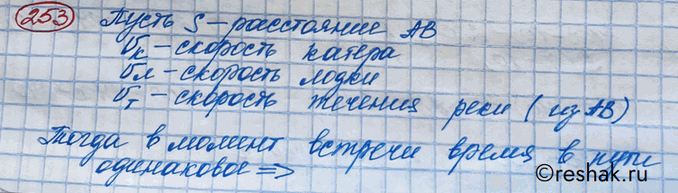 253 Пусть S – расстояние AB
σк – скорость катера
σл – скорость лодки
σт – скорость течения реки (из AB)
Тогда в момент встречи время в пути
одинаковое =>
reshak.ru